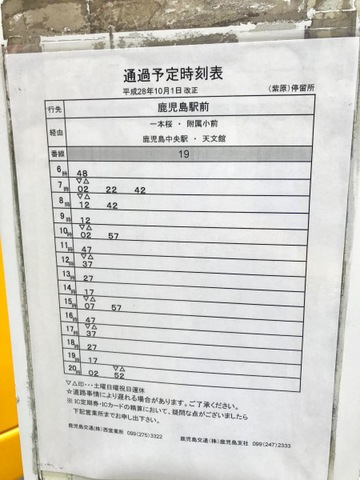 通過予定時刻表
平成28年10月1日 改正 (紫原)停留所
行先 鹿児島駅前
経由 一本桜 ・ 附属小前
鹿児島中央駅 ・ 天文館
番線 19
6時 48
7時 ▽△02 22 42
8時 ▽△12 42
9時 12
10時 ▽△02 57
11時 47
12時 ▽△37
13時 27
14時 17
15時 ▽△07 57
16時 47
17時 ▽△37
18時 27
19時 17
20時 02 ▽△52
▽△印・・・土曜日曜祝日運休
☆道路事情により遅れる場合があります。ご了承ください。
※IC定期券・ICカードの精算において、疑問な点がございましたら
下記営業所までお申し出下さい。
鹿児島交通(株)西営業所 099(275)3322 鹿児島交通(株)鹿児島支社 099(247)2333